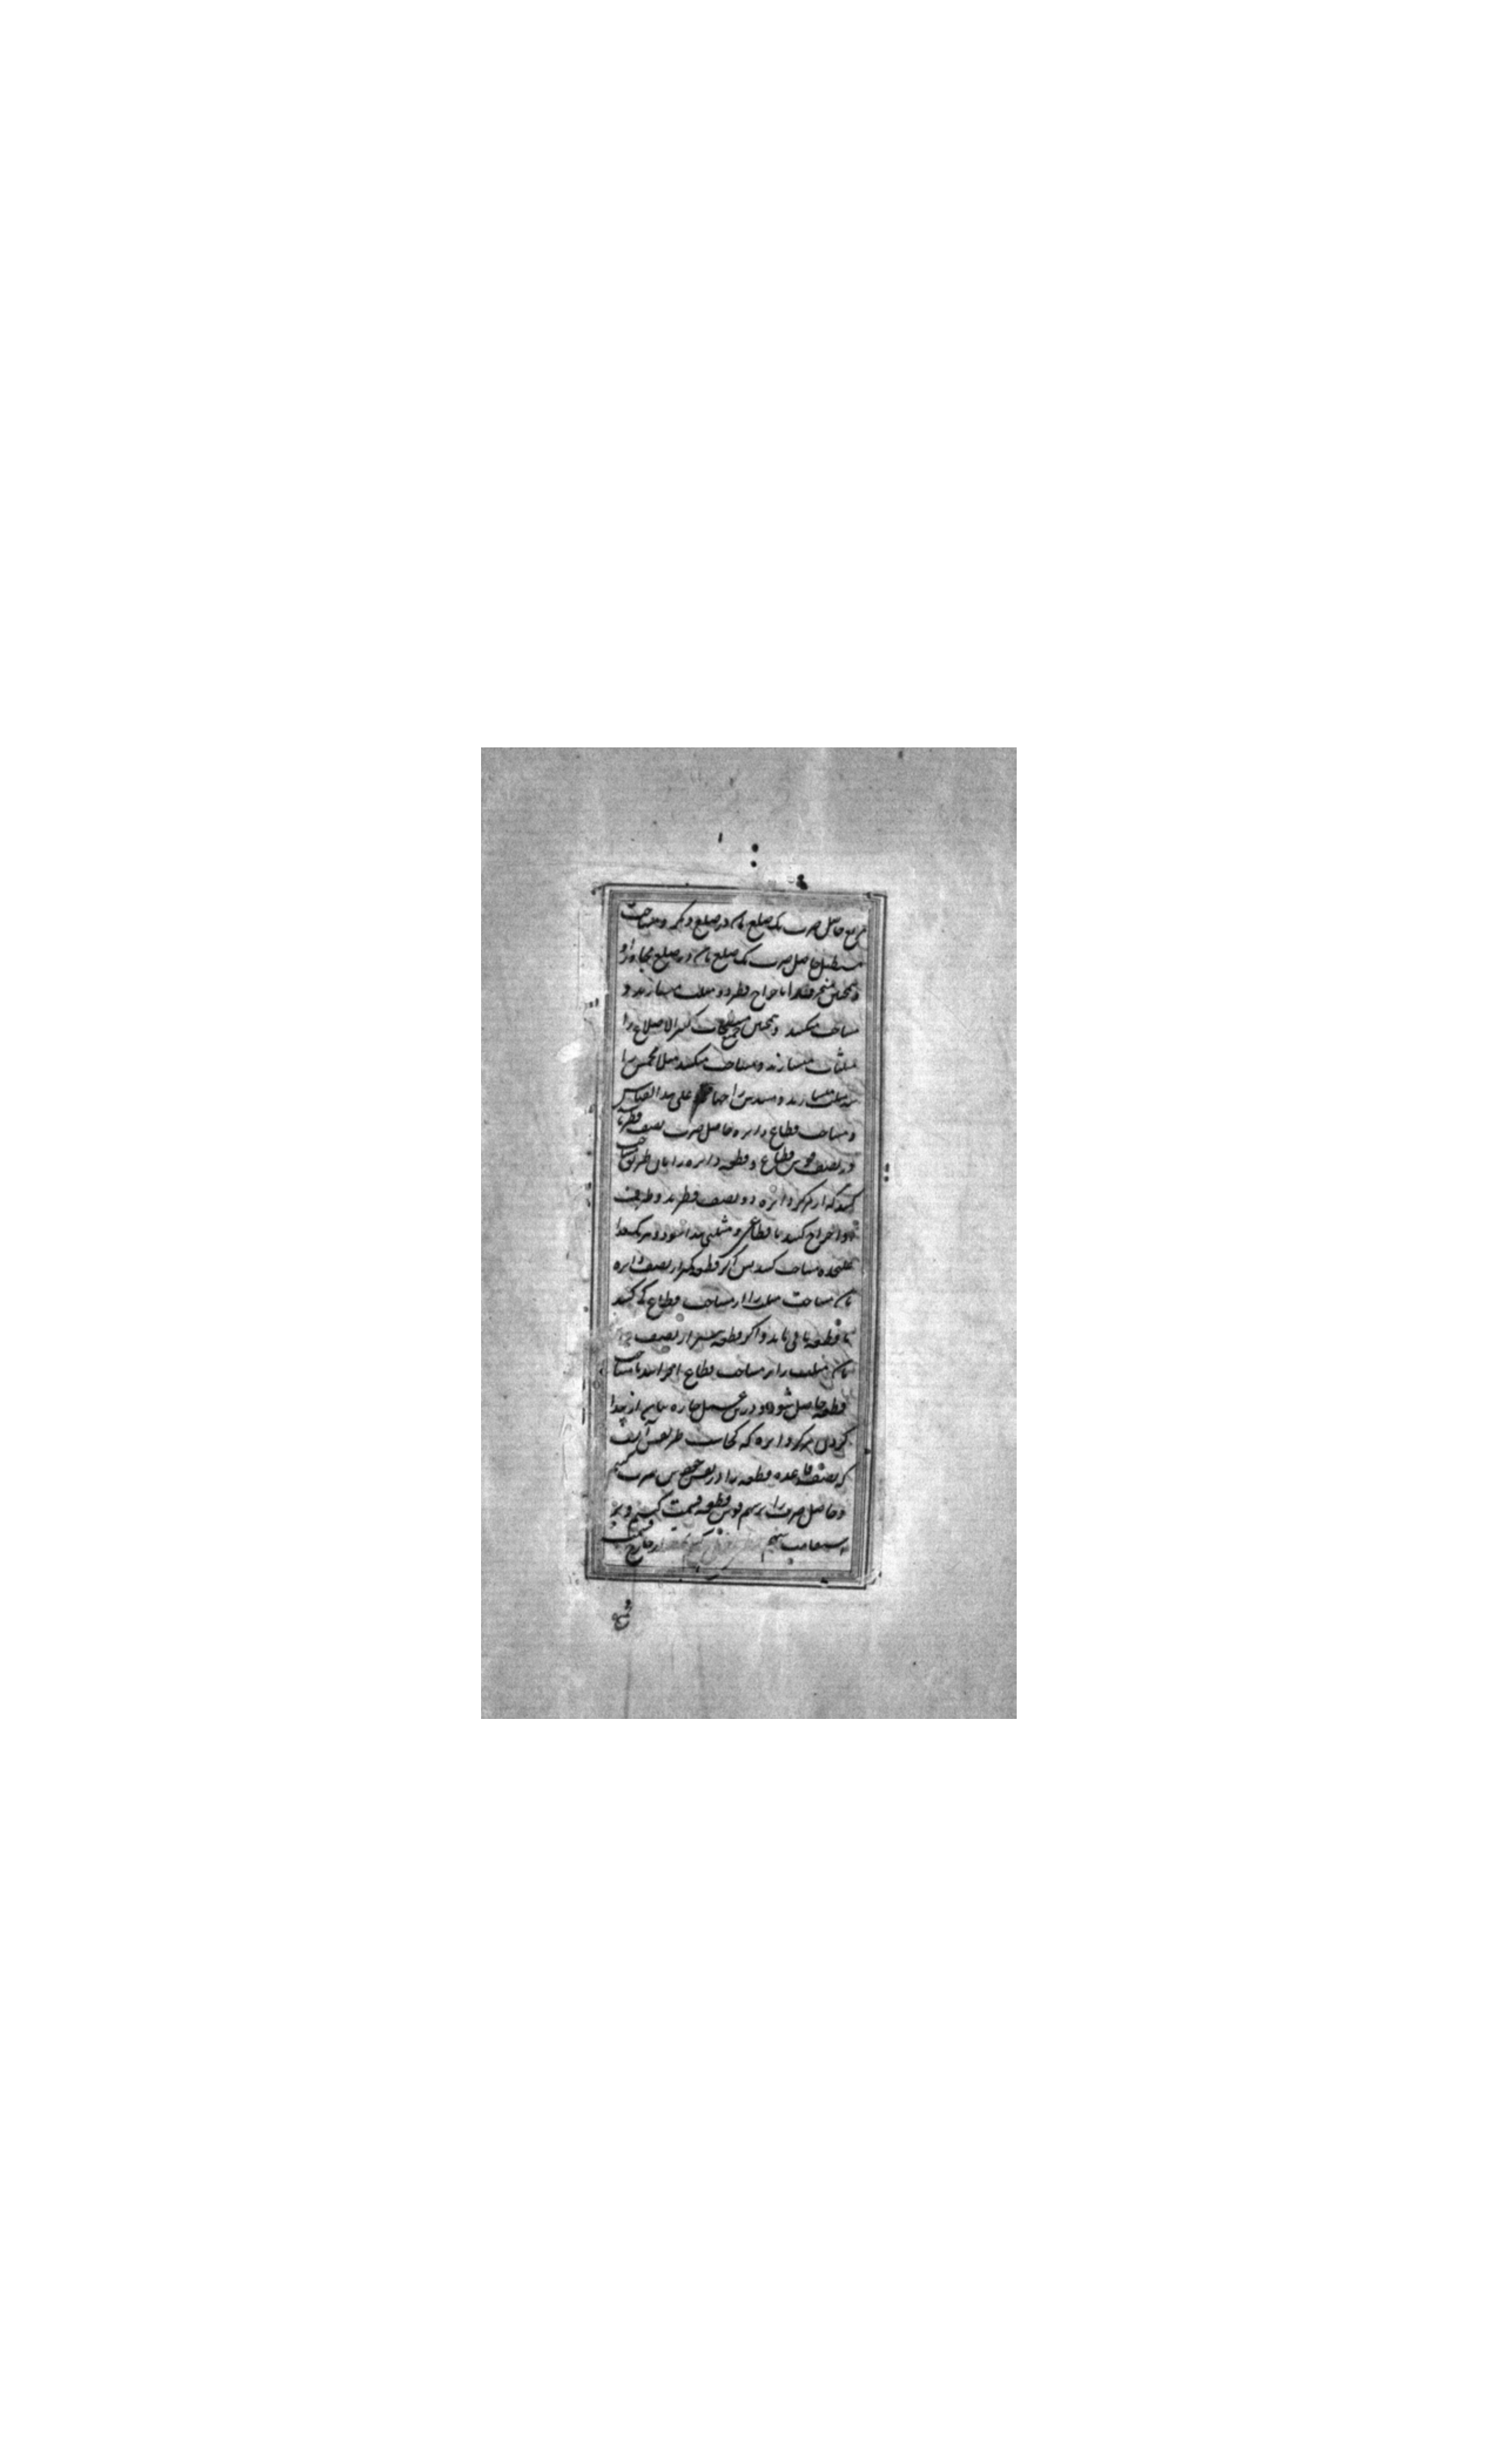 مربع حاصل ضرب یک ضلع آن در ضلع دیگر و مساحت
مستطیل حاصل ضرب یک ضلع آن در ضلع مجاور او
و همچنین منحرف را باخراج قطر دو مثلث میسازند و
مساحت میکنند و همچنین جمیع مسطحات کثیر الاضلاع را
مثلثات میسازند و مساحت میکنند مثلا مخمس را
سه مثلث میسازند و مسدس را چهار علی هذا القیاس
و مساحت قطاع دایره حاصل ضرب نصف قطر
در نصف قوس قطاع و قطعه دایره را بان طریق مساحت
کنند که از مرکز دایره دو نصف قطر بدو طرف
اخراج کنند تا قطاعی و مثلثی پیدا شود و هر یک را
علیحده مساحت کنند پس اگر قطعه کمتر از نصف دایره
مساحت مثلث را از مساحت قطاع کم کنند
تا قطعه باقی ماند و اگر قطعه بیشتر از نصف
مثلث را بر مساحت قطاع افزایند تا مساحت
قطعه حاصل شود و درین عمل چاره از پیدا
کردن مرکز دایره که کجاست طریقش آنست
که نصف قاعده قطعه را در نفس خویش ضرب کنیم
و حاصل ضرب را بر سهم قوس قطعه قسمت کنیم و بر
سهم از خارج قسمت